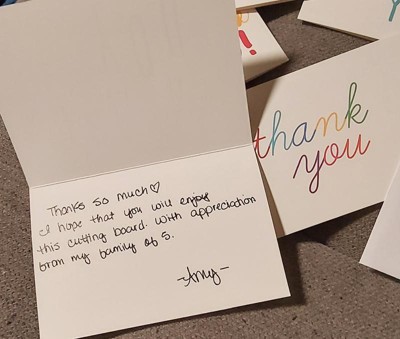 Thanks so much♡
I hope that you will enjoy
this cutting board. With appreciation
from my family of 5.
-Amy-
!
thank
you